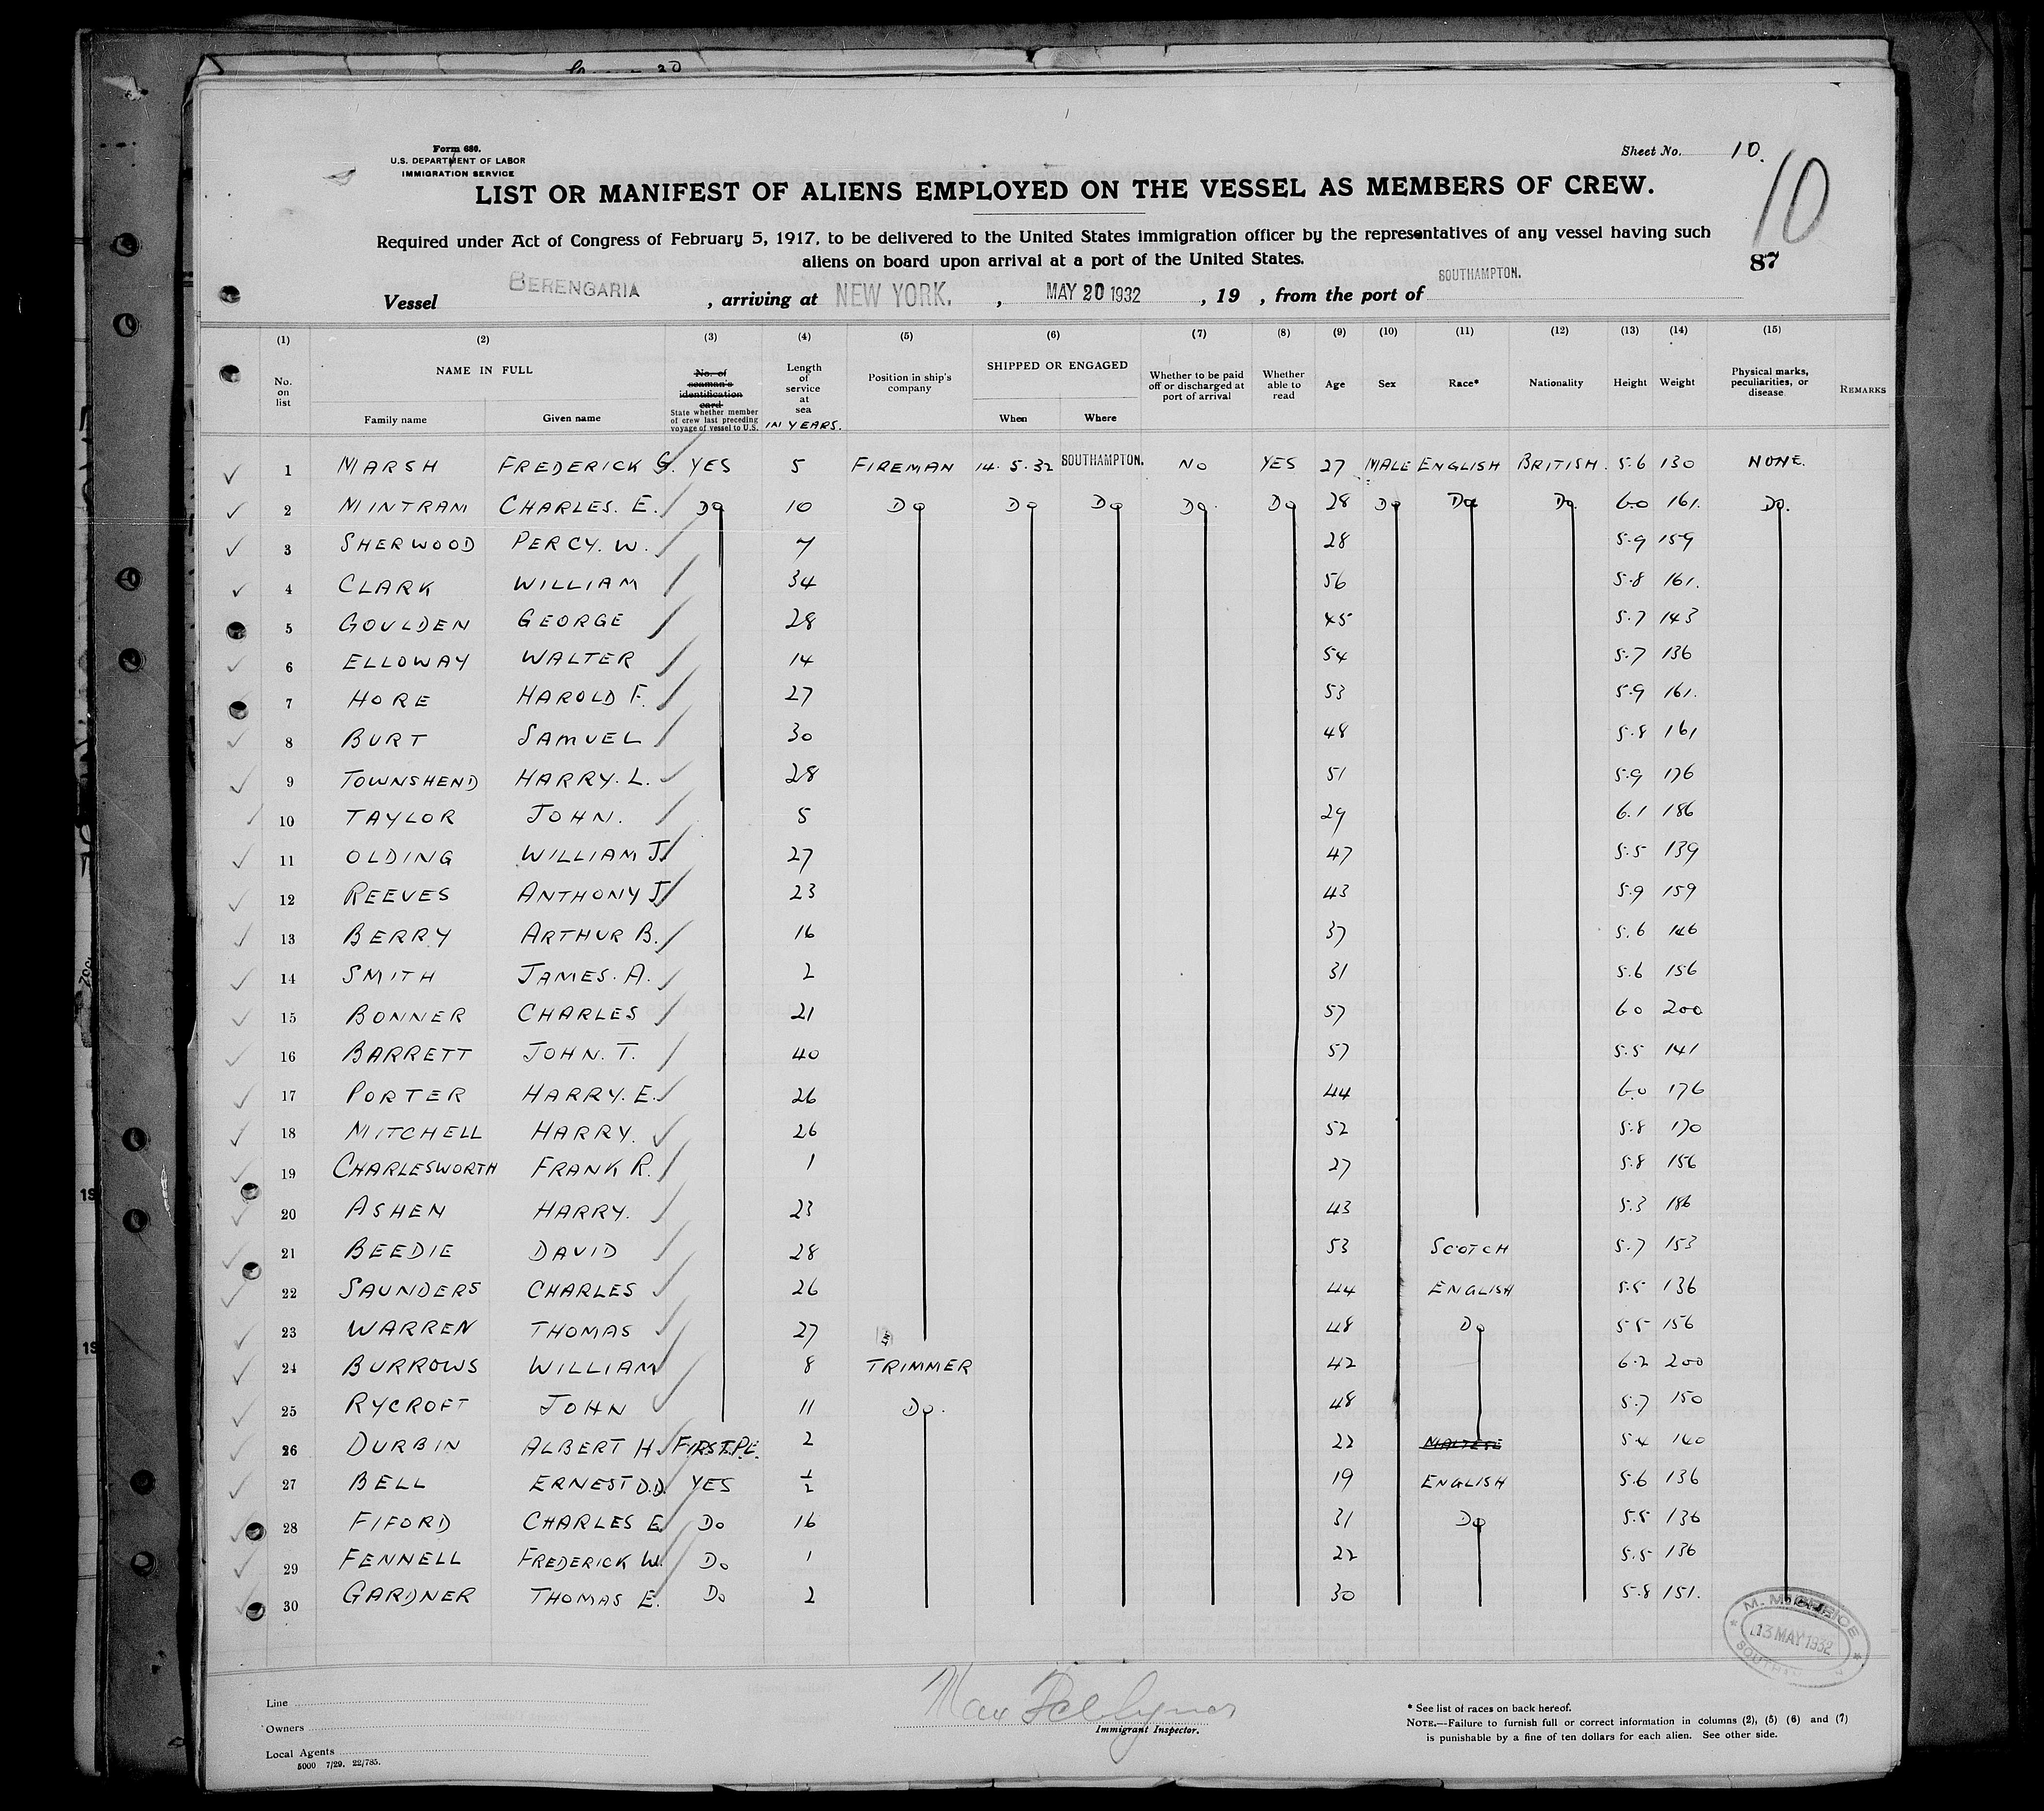 Form 686.
U.S. DEPARTMENT OF LABOR
IMMIGRATION SERVICE
Sheet No. 10.
10
LIST OR MANIFEST OF ALIENS EMPLOYED ON THE VESSEL AS MEMBERS OF CREW.
Required under Act of Congress of February 5, 1917, to be delivered to the United States immigration officer by the representatives of any vessel having such
aliens on board upon arrival at a port of the United States.
87
Vessel BERENGARIA, arriving at NEW YORK., MAY 20 1932, 19 , from the port of SOUTHAMPTON.
(1) (2) (3) (4) (5) (6) (7) (8) (9) (10) (11) (12) (13) (14) (15)
No. on list NAME IN FULL Family name Given name No. of seaman's identification card State whether member of crew last preceding voyage of vessel to U.S. Length of service at sea IN YEARS. Position in ship's company SHIPPED OR ENGAGED When Where Whether to be paid off or discharged at port of arrival Whether able to read Age Sex Race* Nationality Height Weight Physical marks, peculiarities, or disease REMARKS
1 MARSH FREDERICK G. YES 5 FIREMAN 14.5.32 SOUTHAMPTON. NO YES 27 MALE ENGLISH BRITISH. 5.6 130 NONE.
2 MINTRAM CHARLES. E. DO 10 DO DO DO DO DO 28 DO DO DO 6.0 161. DO.
3 SHERWOOD PERCY. W. 7 28 5.9 159
4 CLARK WILLIAM 34 56 5.8 161.
5 GOULDEN GEORGE 28 45 5.7 143
6 ELLOWAY WALTER 14 54 5.7 136
7 HORE HAROLD F. 27 53 5.9 161.
8 BURT SAMUEL 30 48 5.8 161
9 TOWNSHEND HARRY. L. 28 51 5.9 176
10 TAYLOR JOHN. 5 29 6.1 186
11 OLDING WILLIAM J. 27 47 5.5 139
12 REEVES ANTHONY J. 23 43 5.9 159
13 BERRY ARTHUR B. 16 37 5.6 146
14 SMITH JAMES. A. 2 31 5.6 156
15 BONNER CHARLES 21 57 6.0 200
16 BARRETT JOHN. T. 40 57 5.5 141
17 PORTER HARRY. E. 26 44 6.0 176
18 MITCHELL HARRY. 26 52 5.8 170
19 CHARLESWORTH FRANK R. 1 27 5.8 156
20 ASHEN HARRY. 23 43 5.3 186
21 BEEDIE DAVID 28 53 SCOTCH 5.7 153
22 SAUNDERS CHARLES 26 44 ENGLISH 5.5 136
23 WARREN THOMAS 27 48 DO 5.5 156
24 BURROWS WILLIAM 8 TRIMMER 42 6.2 200
25 RYCROFT JOHN 11 DO. 48 5.7 150
26 DURBIN ALBERT H. FIRST.PL. 2 22 MALTESE 5.4 140
27 BELL ERNEST D.D. YES 1/2 19 ENGLISH 5.6 136
28 FIFORD CHARLES E. DO 16 31 DO 5.5 136
29 FENNELL FREDERICK W. DO 1 22 5.5 136
30 GARDNER THOMAS E. DO 2 30 5.8 151.
13 MAY 1932
Line
Owners
Local Agents
5000 7/29. 22/785.
Immigrant Inspector.
* See list of races on back hereof.
NOTE.—Failure to furnish full or correct information in columns (2), (5) (6) and (7)
is punishable by a fine of ten dollars for each alien. See other side.